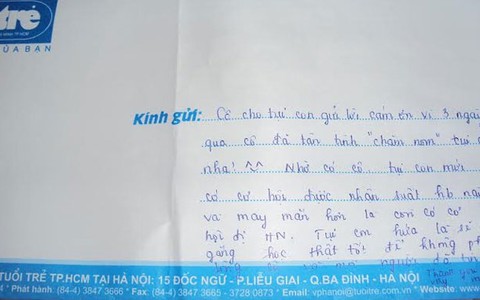 trẻ
CỦA BẠN
Kính gửi: Cô cho tụi con gửi lời cảm ơn vì 3 ngày
qua cô đã tận tình "chăm nom" tụi
nha! ^^ Nhờ có cô, tụi con mới
có cơ hội được nhận suất hb
và may mắn hơn là con có cơ
hội đi HN. Tụi em hứa là sẽ
gắng học thật tốt để không
TUỔI TRẺ TP.HCM TẠI HÀ NỘI: 15 ĐỐC NGỮ - P.LIỄU GIAI - Q.BA ĐÌNH - HÀ NỘI
4 * Phát hành: (84-4) 3847 3666 * Fax: (84-4) 3847 3665 - 3728 0873 * Email: vphanoi@tuoitre.com.vn * Website: www